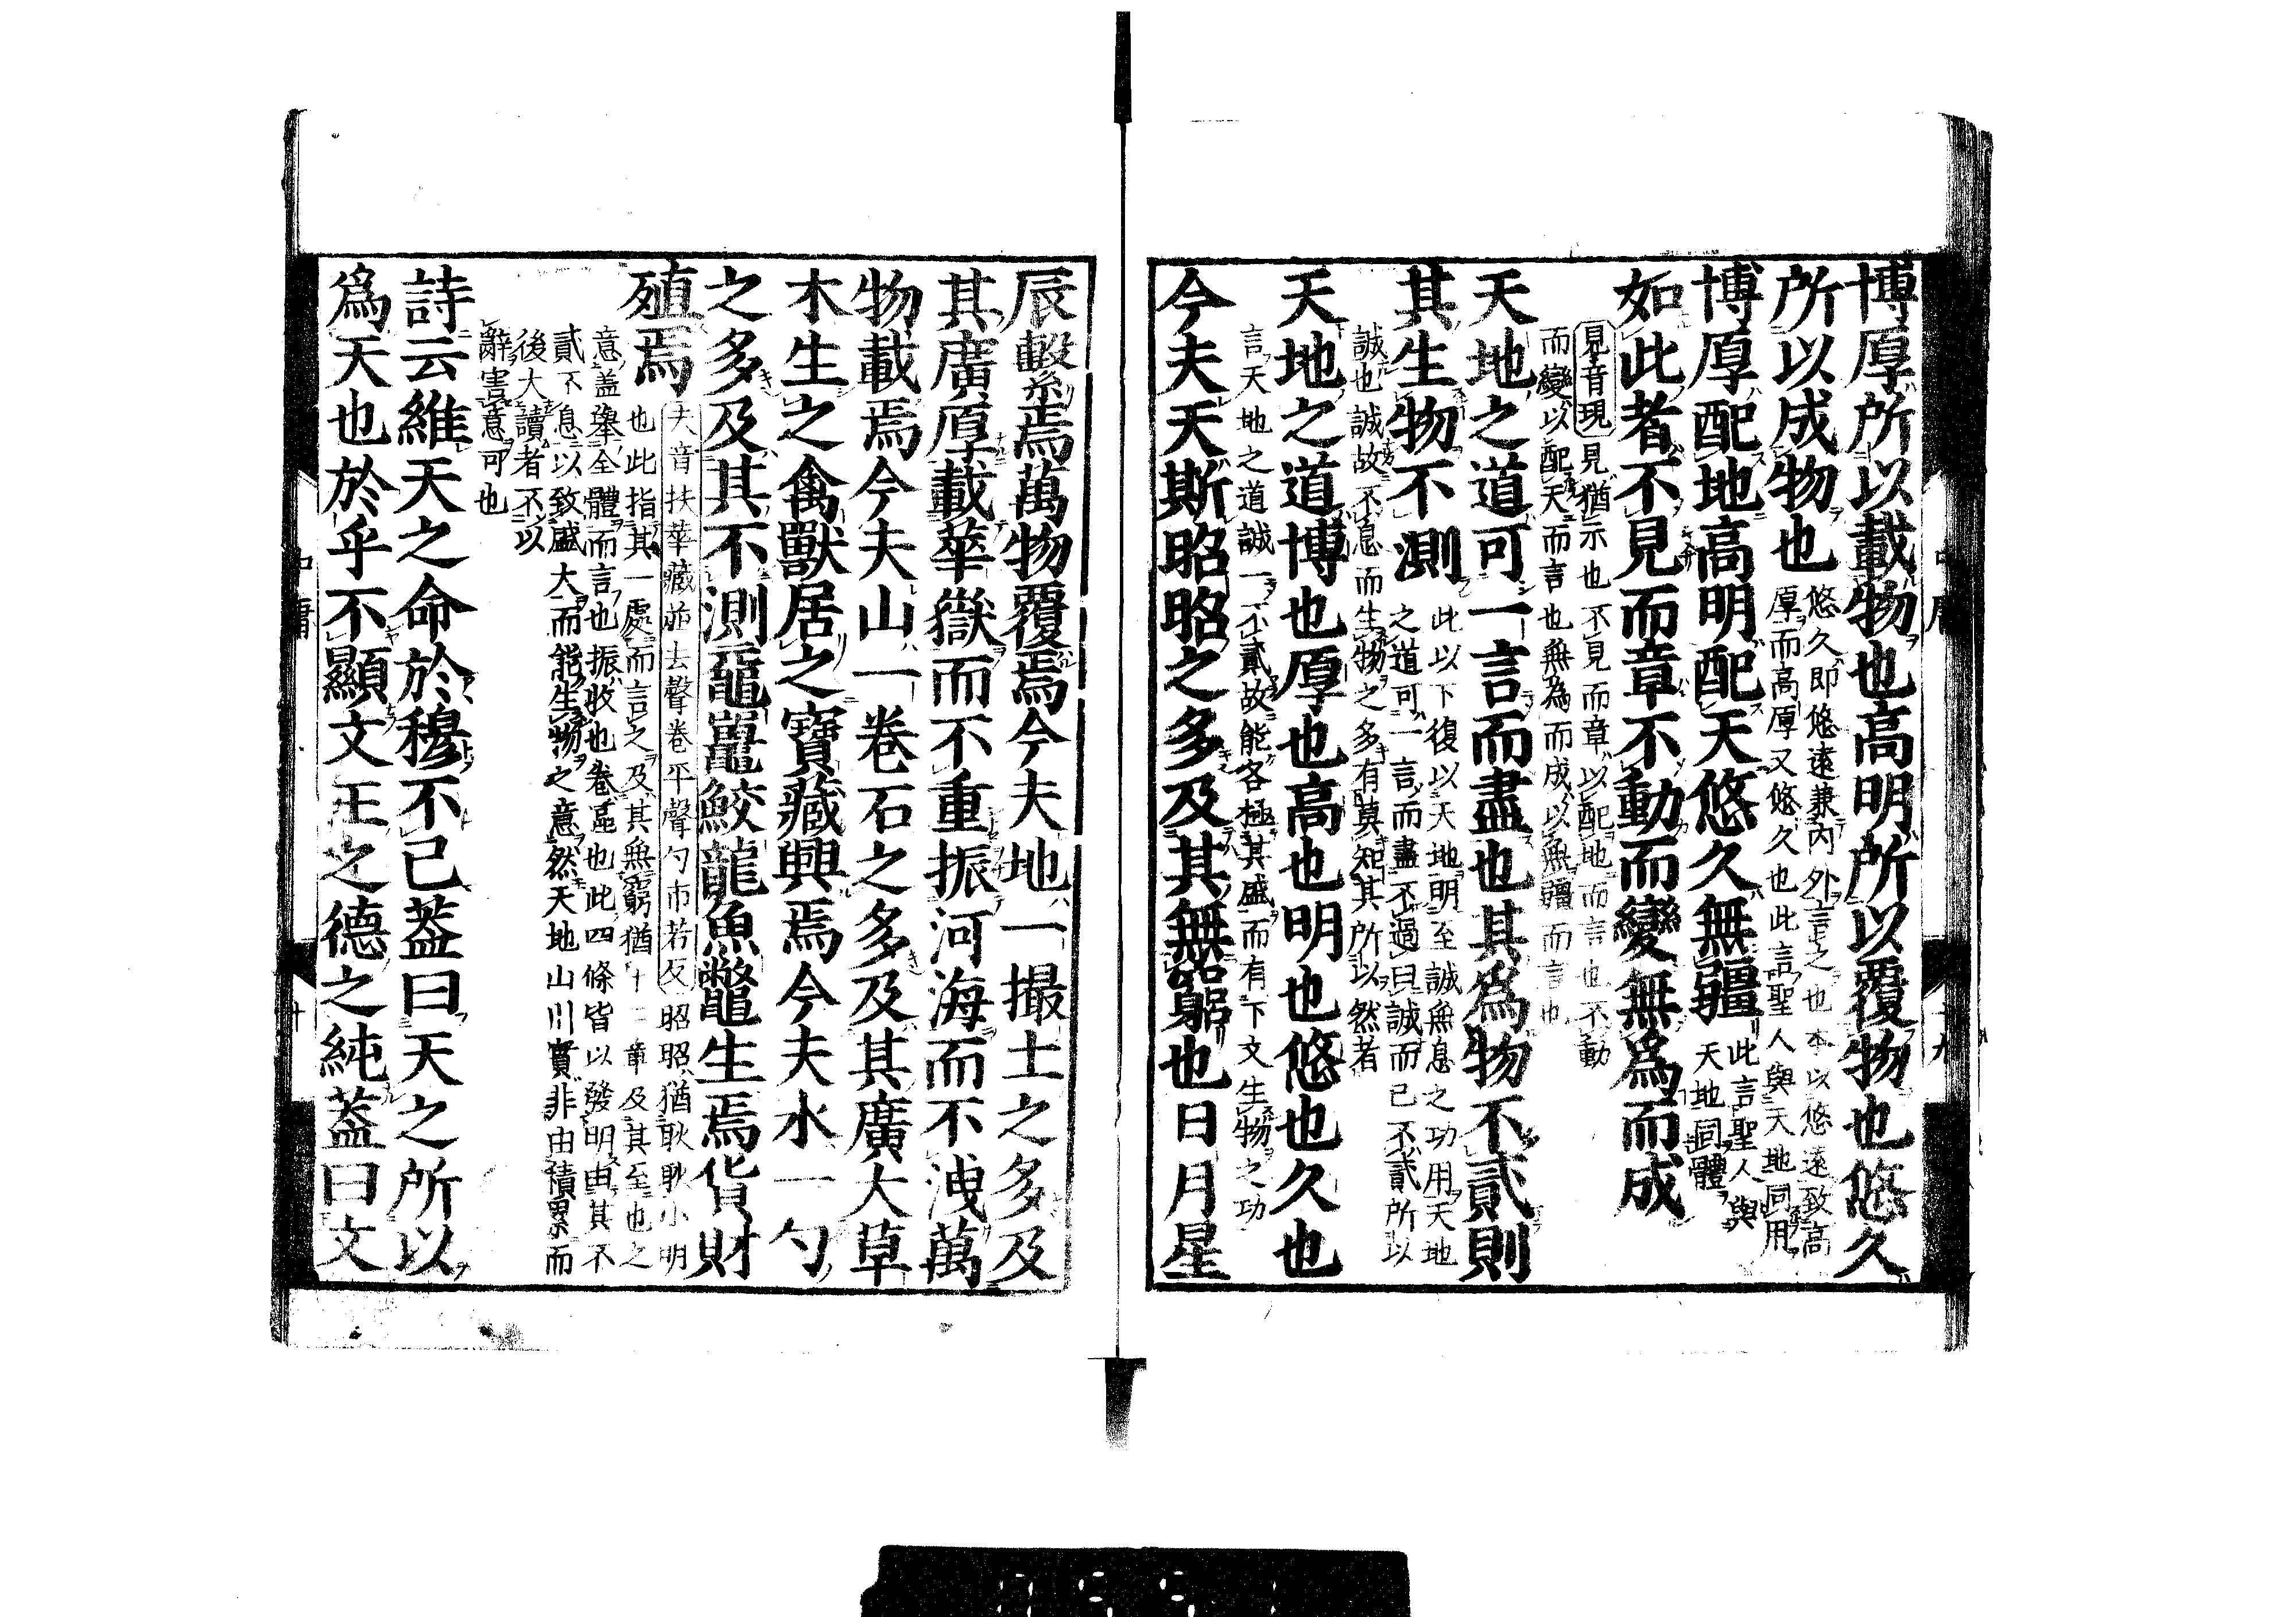 博厚所以載物也高明所以覆物也悠久
所以成物也
悠久即悠遠兼内外言之也本以悠遠致高
厚而高厚又悠久也此言聖人與天地同用
博厚配地高明配天悠久無疆
此言聖人與
天地同體
如此者不見而章不動而變無爲而成
見音現
見猶示也不見而章以配地而言也不動
而變以配天而言也無為而成以無疆而言也
天地之道可一言而盡也其爲物不貳則
其生物不測
此以下復以天地明至誠無息之功用天地
之道可一言而盡不過曰誠而已不貳所以
誠也誠故不息而生物之多有莫知其所以然者
天地之道博也厚也高也明也悠也久也
言天地之道誠一不貳故能各極其盛而有下文生物之功
今夫天斯昭昭之多及其無窮也日月星
辰繫焉萬物覆焉今夫地一撮土之多及
其廣厚載華嶽而不重振河海而不洩萬
物載焉今夫山一卷石之多及其廣大草
木生之禽獸居之寶藏興焉今夫水一勺
之多及其不測黿鼉鮫龍魚鼈生焉貨財
殖焉
夫音扶華藏並去聲卷平聲勺市若反
昭昭猶耿耿小明
也此指其一處而言之及其無窮猶十二章及其至也之
意蓋舉全體而言也振收也卷區也此四條皆以發明由其不
貳不息以致盛大而能生物之意然天地山川實非由積累而
後大讀者不以
辭害意可也
詩云維天之命於穆不已葢曰天之所以
爲天也於乎不顯文王之德之純葢曰文
中庸